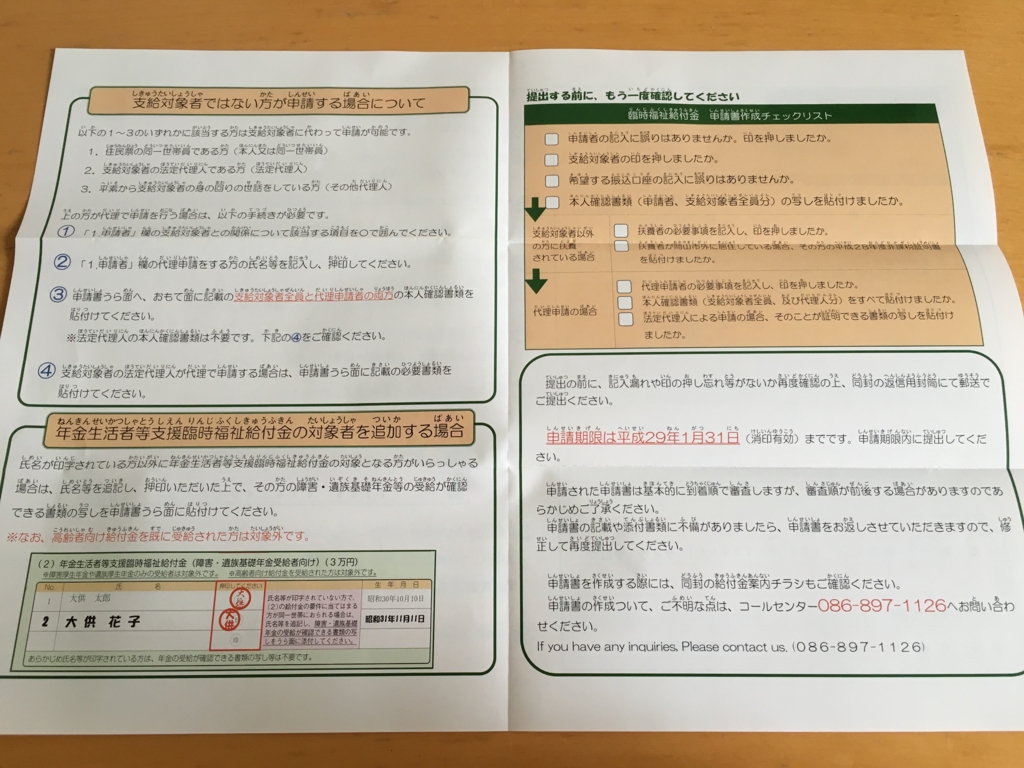 支給対象者ではない方が申請する場合について
以下の1～3のいずれかに該当する方は支給対象者に代わって申請が可能です。
1．住民票の同一世帯員である方（本人又は同一世帯員）
2．支給対象者の法定代理人である方（法定代理人）
3．平素から支給対象者の身の回りの世話をしている方（その他代理人）
上の方が代理で申請を行う場合は、以下の手続きが必要です。
①「1.申請者」欄の支給対象者との関係について該当する項目を〇で囲んでください。
②「1.申請者」欄の代理申請をする方の氏名等を記入し、押印してください。
③ 申請書うら面へ、おもて面に記載の支給対象者全員と代理申請者の両方の本人確認書類を
貼付けてください。
※法定代理人の本人確認書類は不要です。下記の④をご確認ください。
④ 支給対象者の法定代理人が代理で申請する場合は、申請書うら面に記載の必要書類を
貼付けてください。
年金生活者等支援臨時福祉給付金の対象者を追加する場合
氏名が印字されている方以外に年金生活者等支援臨時福祉給付金の対象となる方がいらっしゃる
場合は、氏名等を追記し、押印いただいた上で、その方の障害・遺族基礎年金等の受給が確認
できる書類の写しを申請書うら面に貼付けてください。
※なお、高齢者向け給付金を既に受給された方は対象外です。
（2）年金生活者等支援臨時福祉給付金（障害・遺族基礎年金受給者向け）（3万円）
※障害厚生年金や遺族厚生年金のみの受給者は対象外です。 ※高齢者向け給付金を受給された方は対象外です。
No. 氏 名 押印してください 生年月日
1 大供 太郎 大供 昭和30年10月10日
2 大供 花子 大供 昭和31年11月11日
印
氏名等が印字されていない方で、
(2)の給付金の要件に当てはまる
方が同一世帯におられる場合は、
氏名等を追記し、障害・遺族基礎
年金の受給が確認できる書類の写
しをうら面に添付してください。
あらかじめ氏名等が印字されている方は、年金の受給が確認できる書類の写し等は不要です。
提出する前に、もう一度確認してください
臨時福祉給付金 申請書作成チェックリスト
申請者の記入に誤りはありませんか。印を押しましたか。
支給対象者の印を押しましたか。
希望する振込口座の記入に誤りはありませんか。
本人確認書類（申請者、支給対象者全員分）の写しを貼付けましたか。
支給対象者以外
の方に扶養
されている場合
扶養者の必要事項を記入し、印を押しましたか。
を貼付けましたか。
代理申請の場合
代理申請者の必要事項を記入し、印を押しましたか。
本人確認書類（支給対象者全員、及び代理人分）をすべて貼付けましたか。
法定代理人による申請の場合、そのことが証明できる書類の写しを貼付け
ましたか。
提出の前に、記入漏れや印の押し忘れ等がないか再度確認の上、同封の返信用封筒にて郵送で
ご提出ください。
申請期限は平成29年1月31日（消印有効）までです。申請期限内に提出してくだ
さい。
申請された申請書は基本的に到着順で審査しますが、審査順が前後する場合がありますのであ
らかじめご了承ください。
申請書の記載や添付書類に不備がありましたら、申請書をお返しさせていただきますので、修
正して再度提出してください。
申請書を作成する際には、同封の給付金案内チラシもご確認ください。
申請書の作成ついて、ご不明な点は、コールセンター086-897-1126へお問い合わ
せください。
If you have any inquiries. Please contact us. (086-897-1126)